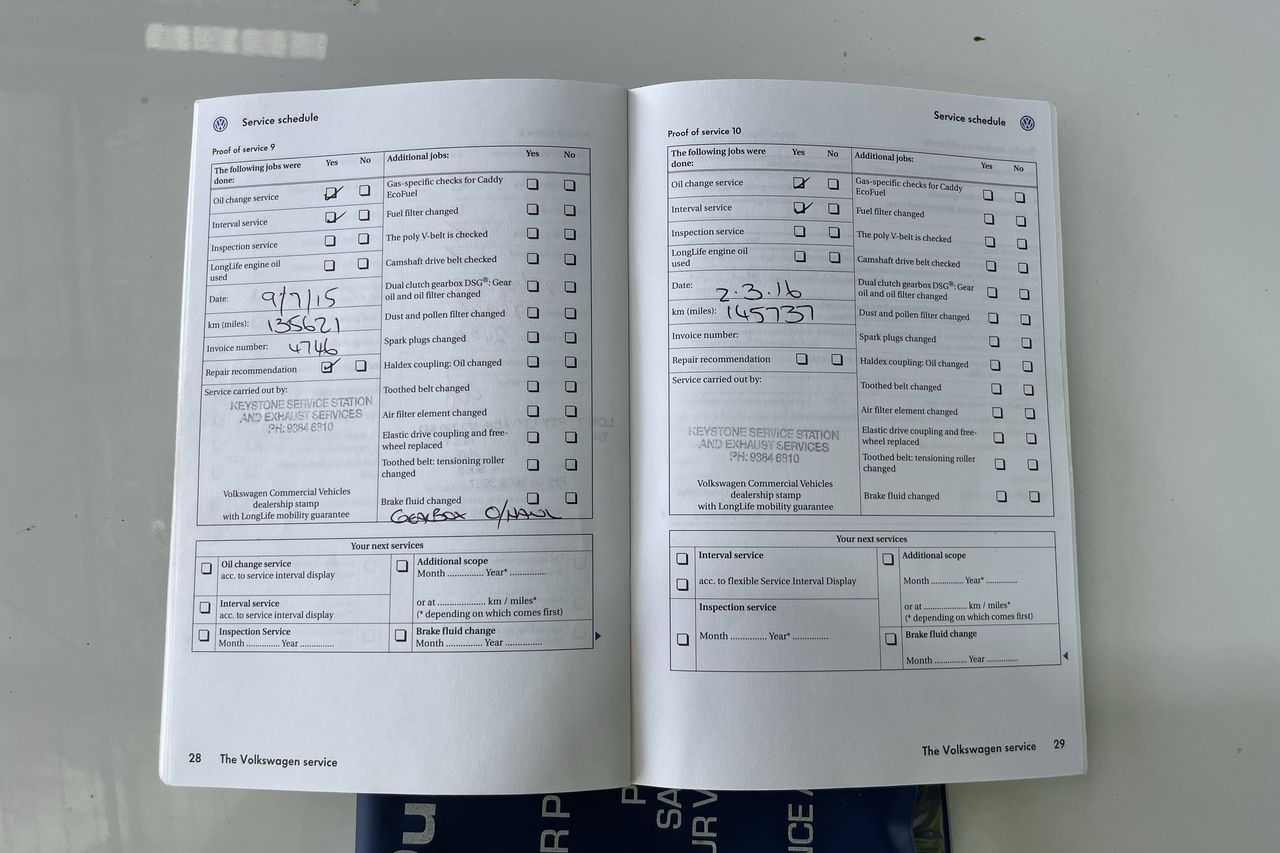 Service schedule
Proof of service 9
The following jobs were done:
Yes No
Additional jobs:
Yes No
Oil change service
Interval service
Inspection service
LongLife engine oil used
Date: 9/7/15
km (miles): 135621
Invoice number: 4746
Repair recommendation
Service carried out by:
KEYSTONE SERVICE STATION
AND EXHAUST SERVICES
PH: 9384 6910
Volkswagen Commercial Vehicles
dealership stamp
with LongLife mobility guarantee
Gas-specific checks for Caddy
EcoFuel
Fuel filter changed
The poly V-belt is checked
Camshaft drive belt checked
Dual clutch gearbox DSG®: Gear
oil and oil filter changed
Dust and pollen filter changed
Spark plugs changed
Haldex coupling: Oil changed
Toothed belt changed
Air filter element changed
Elastic drive coupling and free-
wheel replaced
Toothed belt: tensioning roller
changed
Brake fluid changed
GEARBOX O/HAUL
Your next services
Oil change service
acc. to service interval display
Interval service
acc. to service interval display
Inspection Service
Month .............. Year ..............
Additional scope
Month ............... Year* ...............
or at .................... km / miles*
(* depending on which comes first)
Brake fluid change
Month ............... Year ...............
28 The Volkswagen service
Service schedule
Proof of service 10
The following jobs were
done:
Yes No
Additional jobs:
Yes No
Oil change service
Interval service
Inspection service
LongLife engine oil
used
Date: 2.3.16
km (miles): 145737
Invoice number:
Repair recommendation
Service carried out by:
KEYSTONE SERVICE STATION
AND EXHAUST SERVICES
PH: 9384 6910
Volkswagen Commercial Vehicles
dealership stamp
with LongLife mobility guarantee
Gas-specific checks for Caddy
EcoFuel
Fuel filter changed
The poly V-belt is checked
Camshaft drive belt checked
Dual clutch gearbox DSG®: Gear
oil and oil filter changed
Dust and pollen filter changed
Spark plugs changed
Haldex coupling: Oil changed
Toothed belt changed
Air filter element changed
Elastic drive coupling and free-
wheel replaced
Toothed belt: tensioning roller
changed
Brake fluid changed
Your next services
Interval service
acc. to flexible Service Interval Display
Inspection service
Month ............... Year* ...............
Additional scope
Month .............. Year* ..............
or at .................... km / miles*
(* depending on which comes first)
Brake fluid change
Month .............. Year ..............
The Volkswagen service 29